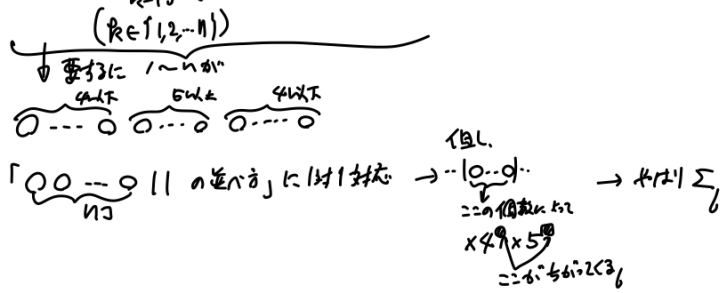 (Pk∈{1,2,…n})
↓ 要するに 1〜nが
4以下 5以上 4以下
○---○ ○…○ ○…○
「○○---○ || の並べ方」に1対1対応 → 但し、 ‥|○‥○|‥ → やはり Σ。
nコ
ここの個数によって
×4^□×5^□
ここがちがってくる。